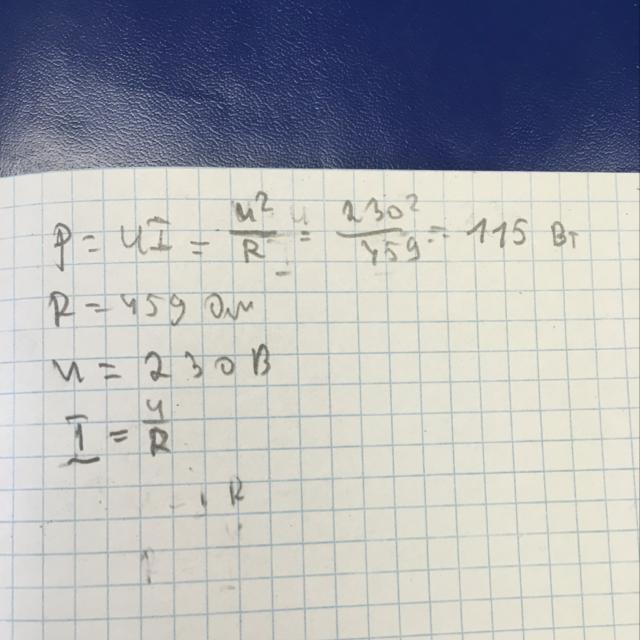 P = UI = U²/R = 230²/459 = 115 Вт
R = 459 Ом
U = 230 В
I = U/R
R